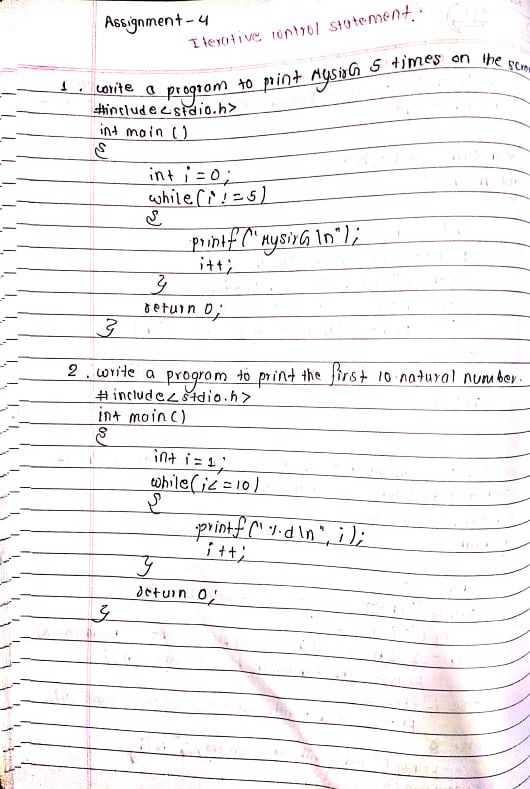 Assignment-4
Iterative control statement.
1. write a program to print MysirG 5 times on the scree
#include<stdio.h>
int main ()
{
int i=0;
while(i!=5)
{
printf("MysirG\n");
i++;
}
return 0;
}
2. write a program to print the first 10 natural number.
#include<stdio.h>
int main()
{
int i=1;
while(i<=10)
{
printf("%d\n", i);
i++;
}
return 0;
}